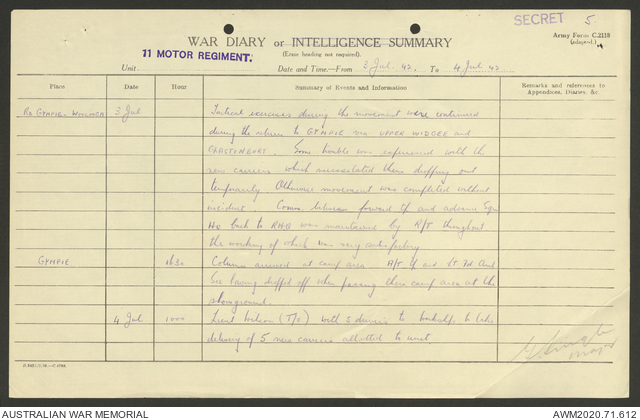 SECRET 5
WAR DIARY or INTELLIGENCE SUMMARY
Army Form C.2118
(adapted.)
(Erase heading not required).
11 MOTOR REGIMENT.
Unit
Date and Time.—From 3 Jul. 42. To 4 Jul 42
Place Date Hour Summary of Events and Information Remarks and references to Appendices, Diaries, &c.
Rd GYMPIE - 3 Jul Tactical exercises during the movement were continued
during the return to GYMPIE via UPPER WIDGEE and
GLASTONBURY. Some trouble was experienced with the
new carriers which necessitated them dropping out
temporarily. Otherwise movement was completed without
incident. Comm. between forward tp and advance Sqn
HQ back to RHQ was maintained by R/T throughout
the working of which was very satisfactory
GYMPIE 1630 Column arrived at camp area A/T tp and Lt Fd Amb
Sec having dropped off when passing their camp area at the
showground.
4 Jul 1000 Lieut Wilson (T/O) with 5 drivers to take
delivery of 5 new carriers allotted to unit.
Major
AUSTRALIAN WAR MEMORIAL
AWM2020.71.612